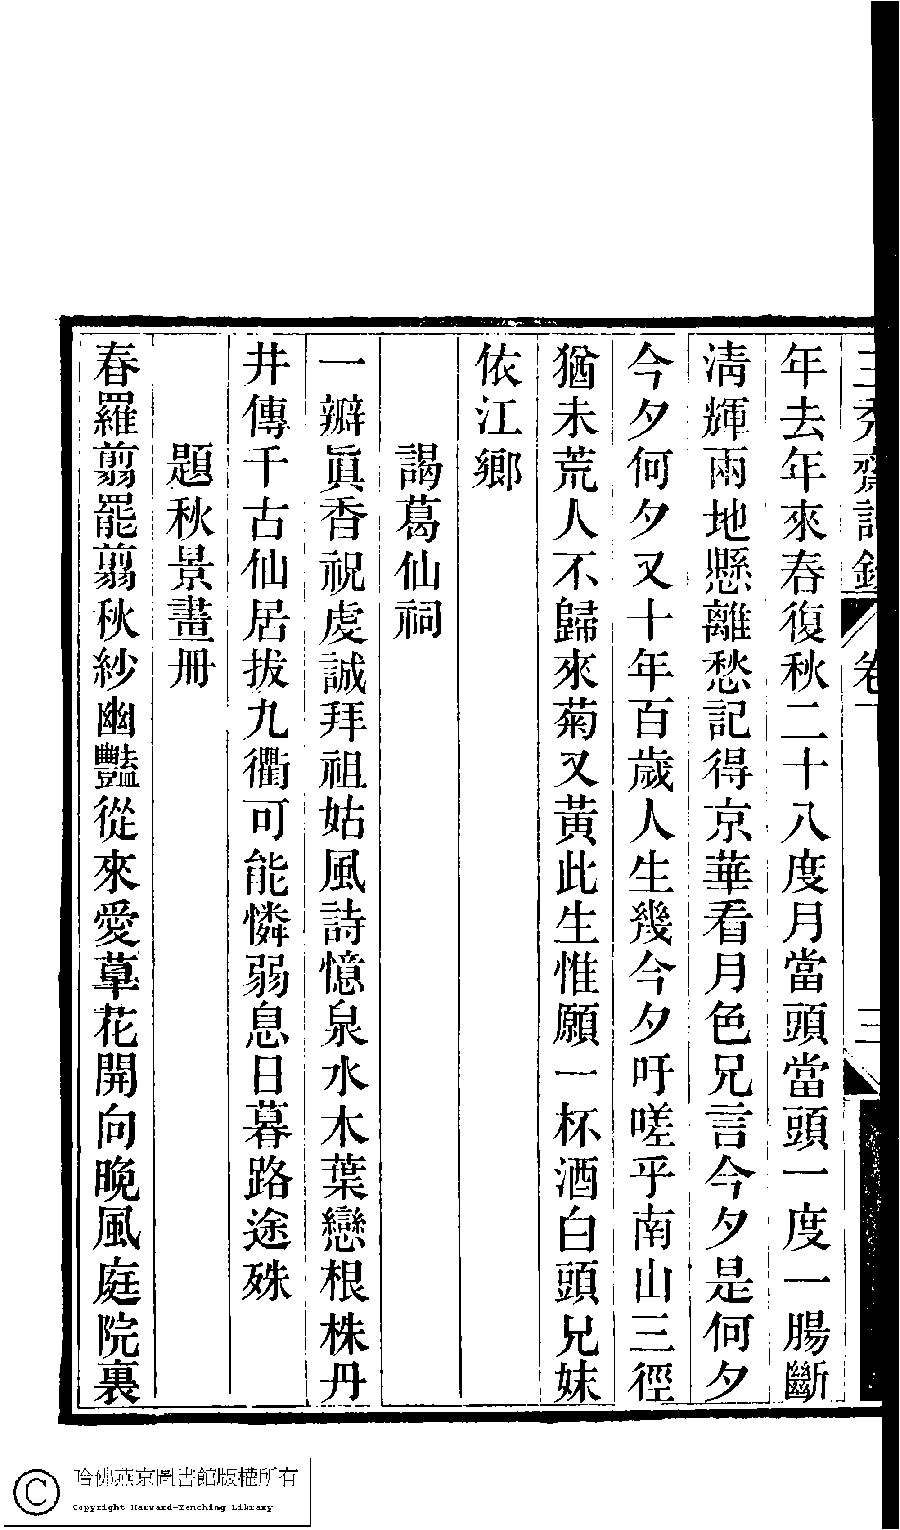 三秀齋詩鈔 卷一 三
年去年來春復秋二十八度月當頭當頭一度一腸斷
淸輝兩地懸離愁記得京華看月色兄言今夕是何夕
今夕何夕又十年百歲人生幾今夕吁嗟乎南山三徑
猶未荒人不歸來菊又黃此生惟願一杯酒白頭兄妹
依江鄉
謁葛仙祠
一瓣眞香祝虔誠拜祖姑風詩憶泉水木葉戀根株丹
井傳千古仙居拔九衢可能憐弱息日暮路途殊
題秋景畫冊
春羅翦罷翦秋紗幽豔從來愛草花開向晚風庭院裏
哈佛燕京圖書館版權所有
Copyright Harvard-Yenching Library